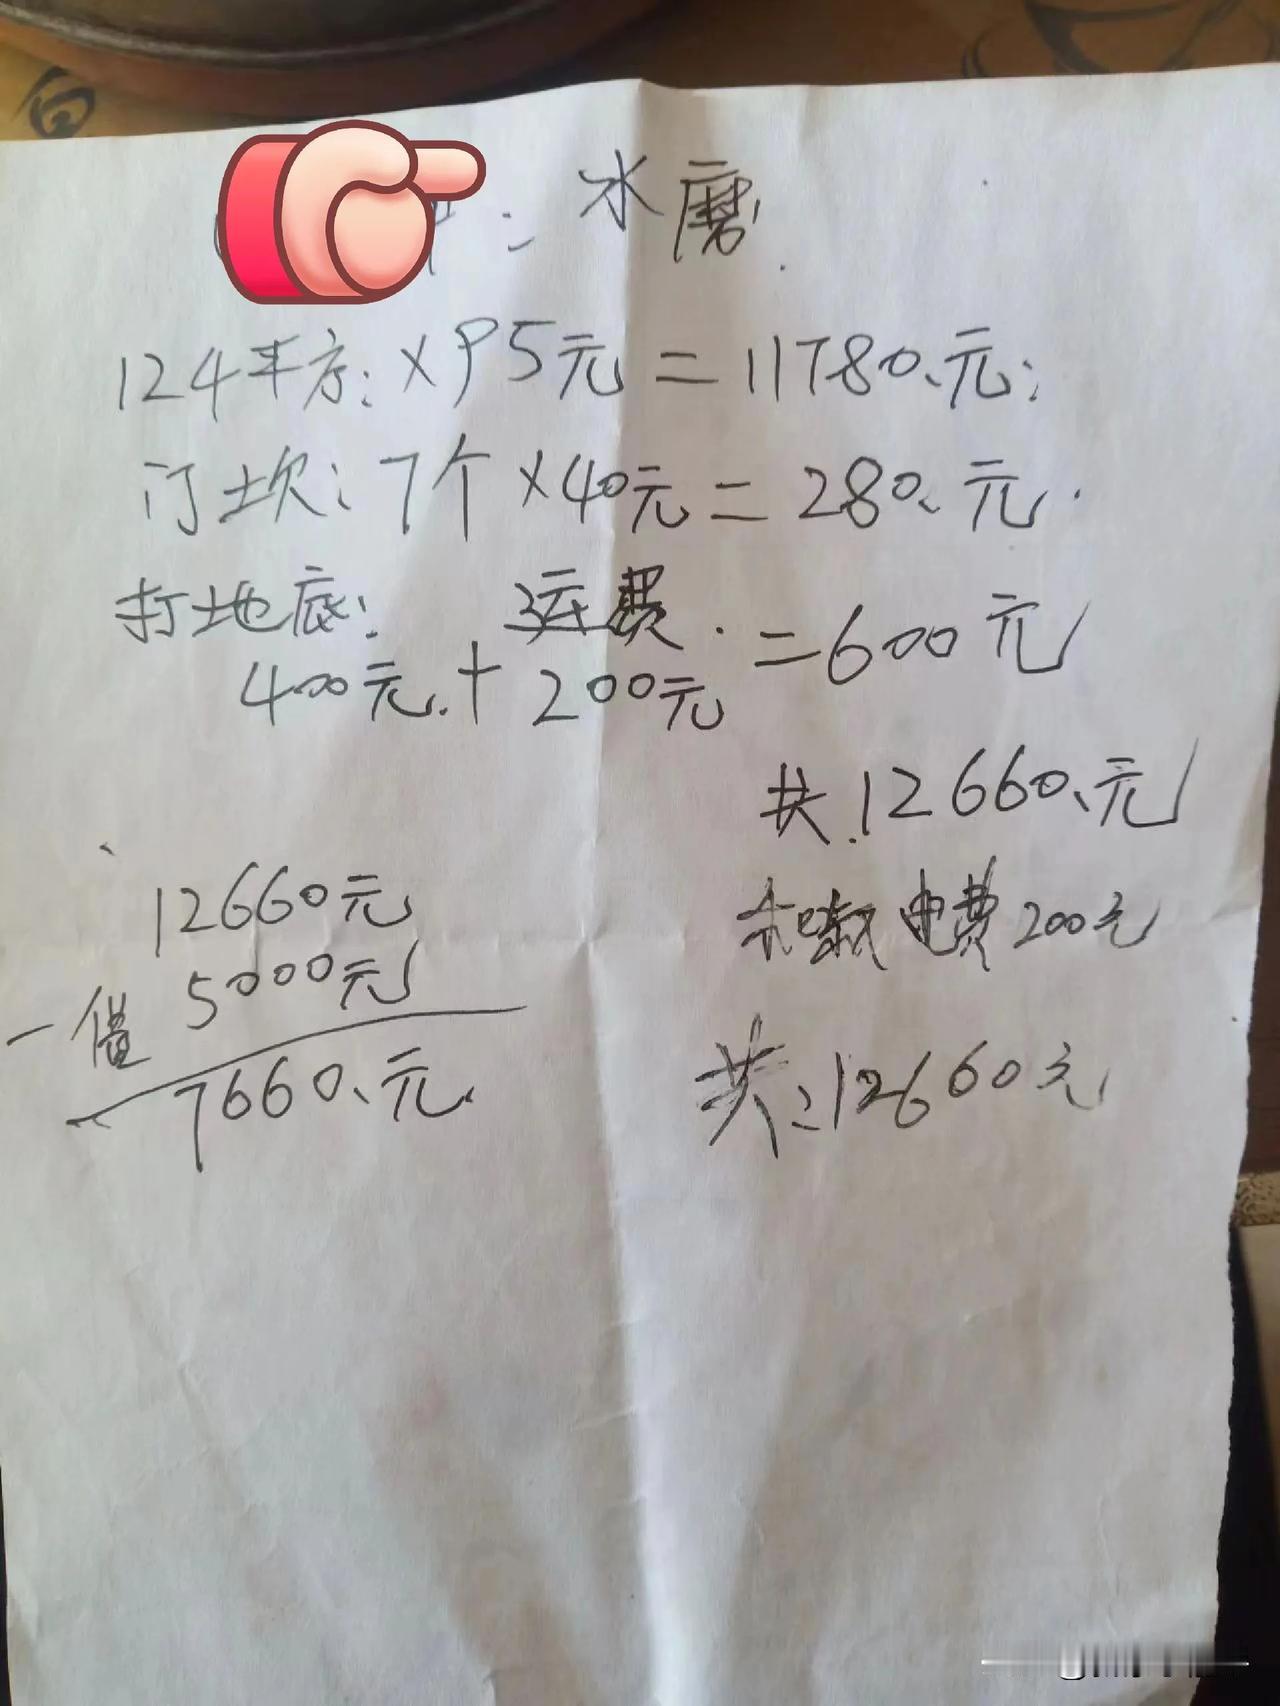 水磨
124平方:×95元=11780、元;
门坎:7个×40元=280、元.
打地底: 运费.
400元.+200元=600元
共.12660、元
12660元
-借 5000元
7660、元.
电费200元
共:12660元